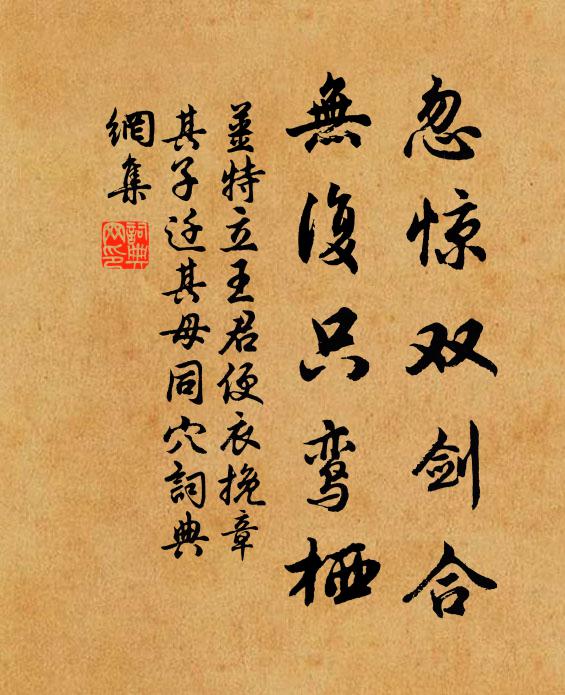 忽惊双剑合
無復只鸾栖
薑特立王君便衣挽章
其子迁其母同穴詞典
網集
詞典
网印